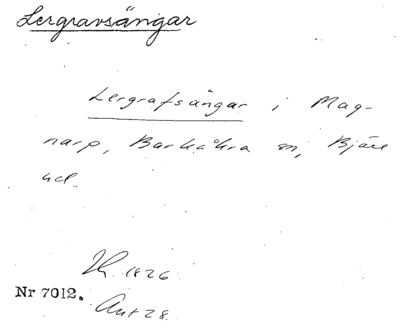 Lergravsängar
Lergrafsängar i Mag-
narp, Barkåkra sn, Bjäre
hd.
1826
Nr 7012.
28